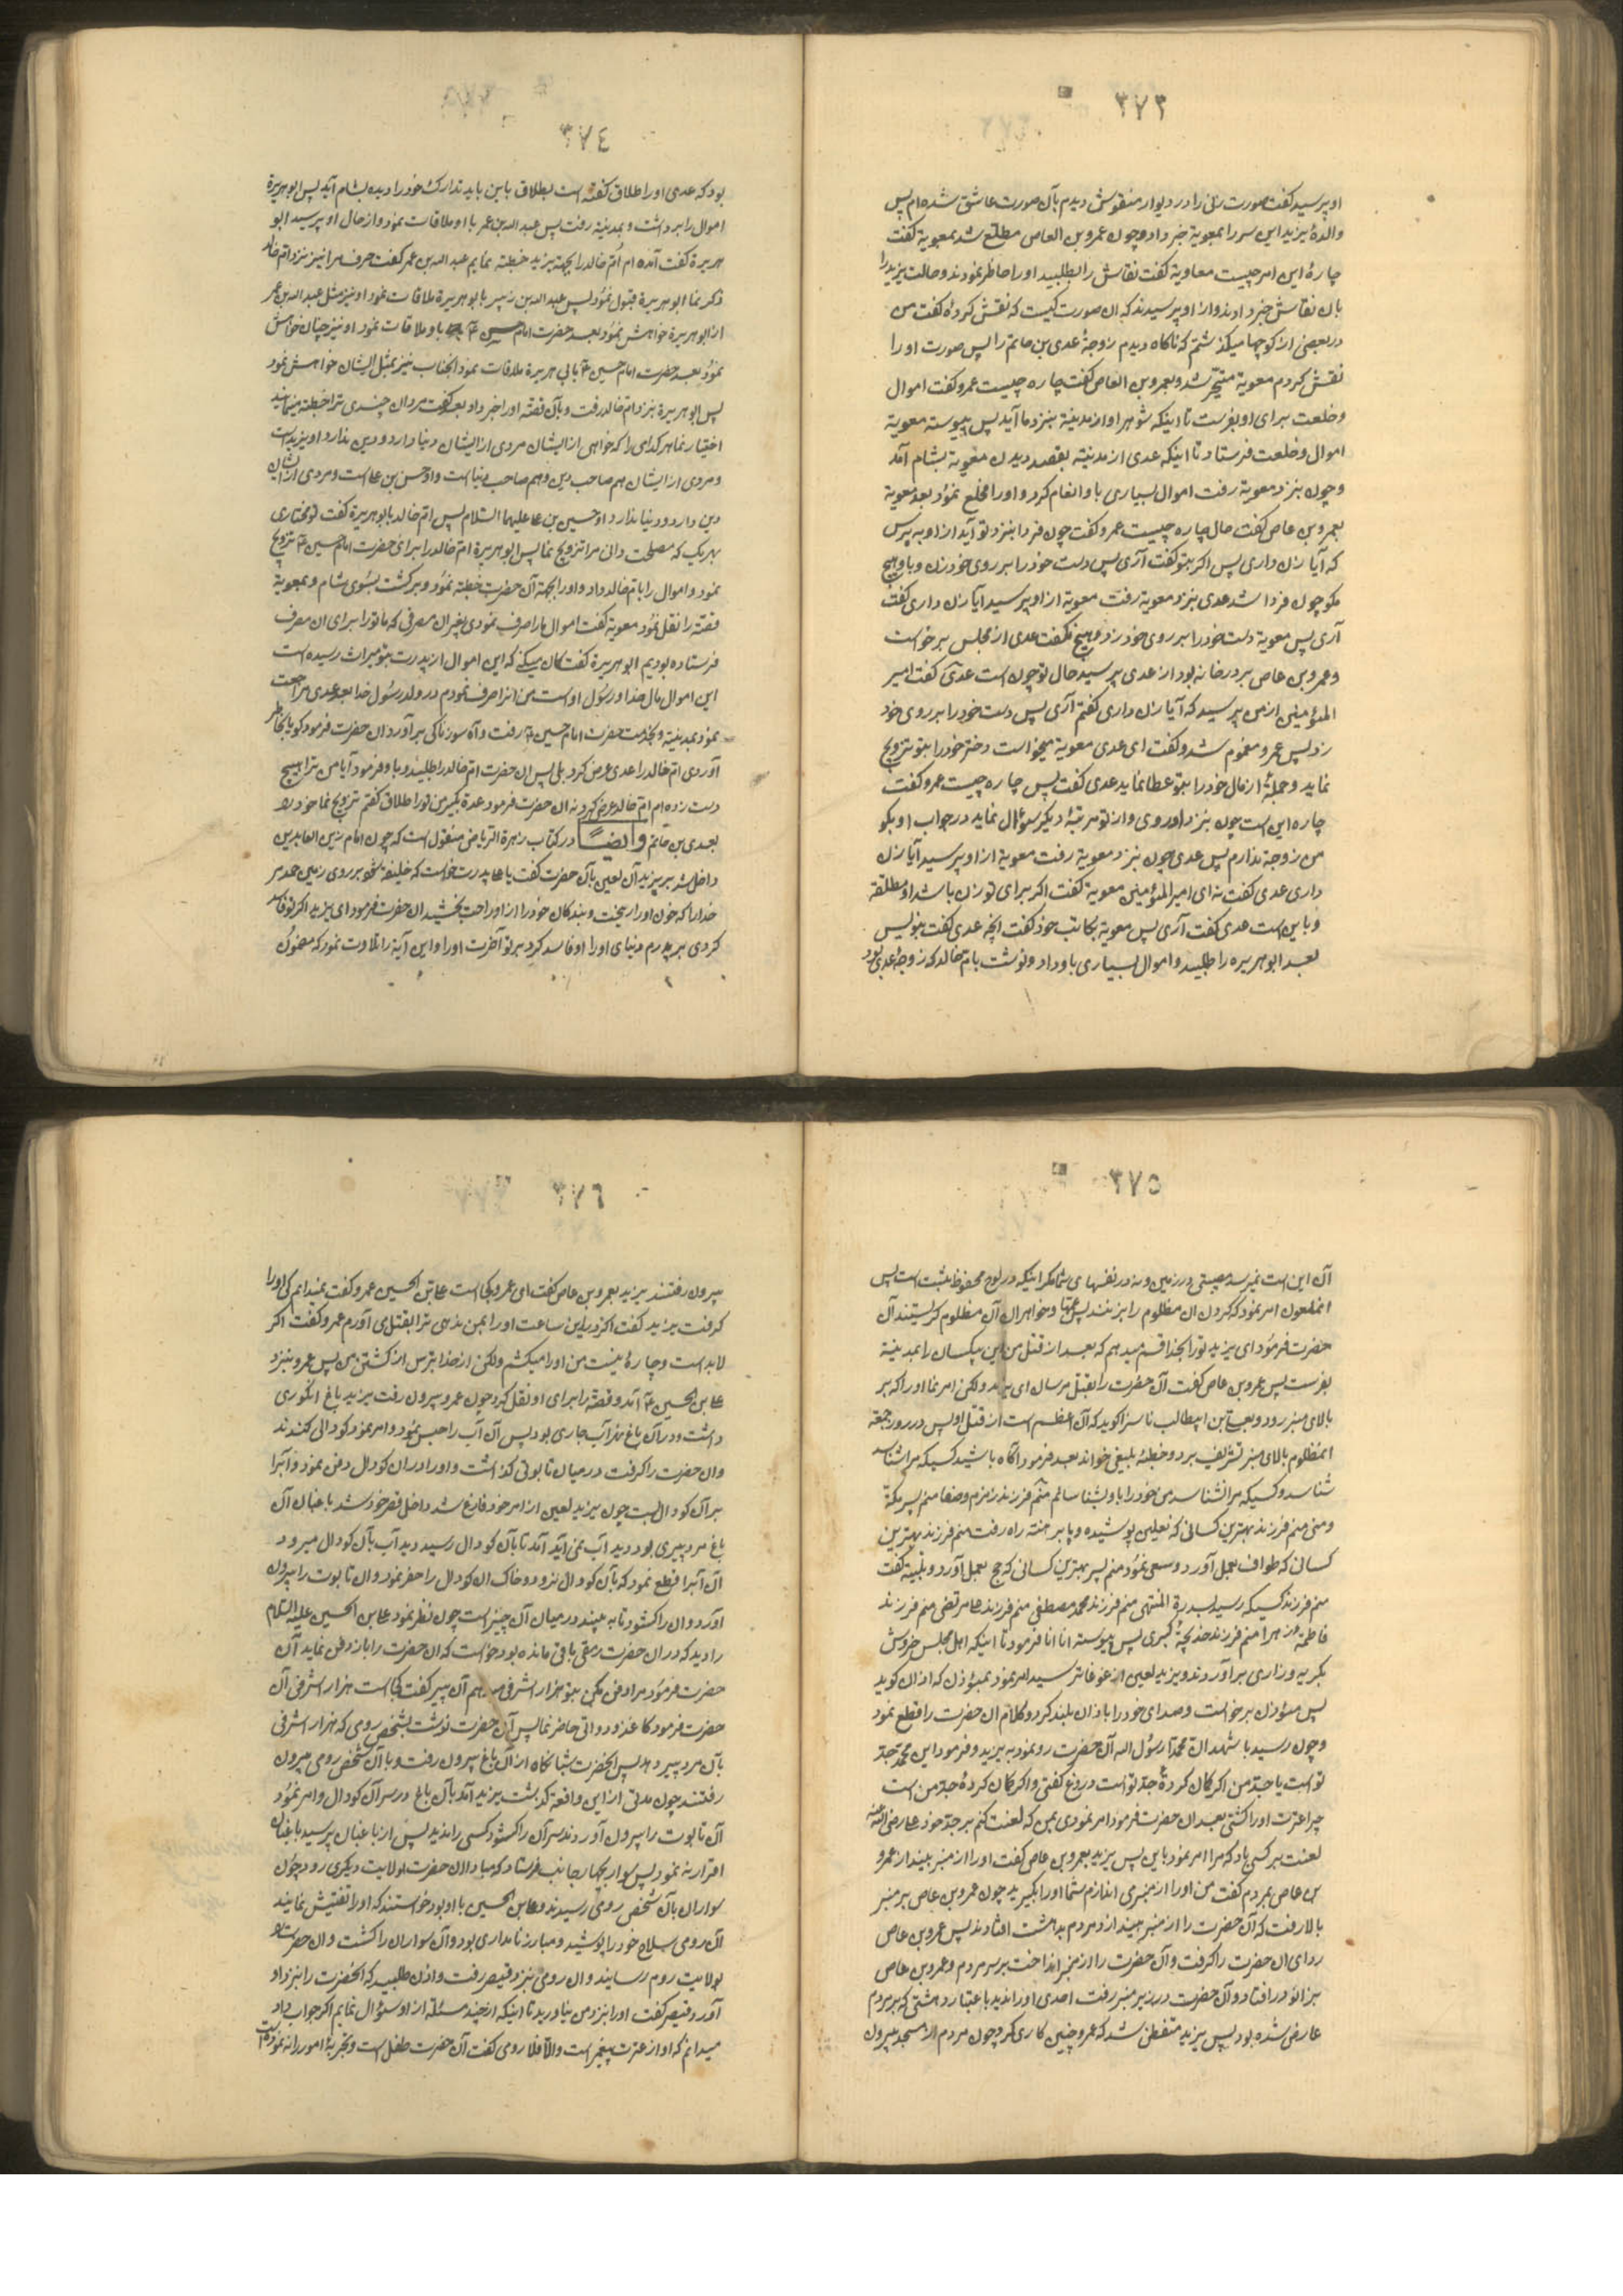 ٣٧٣
او پرسید کفت صورت زنی را در دیوار منقوش دیدم بآن صورت عاشق شده‌ام پس
والدهٔ یزید این سر را بمعویة خبر داد و چون عمرو بن العاص مطلع شد بمعویة کفت
چارهٔ این امر چیست معاویة کفت نقاش را بطلبید او را حاضر نمودند و حالت یزید را
بان نقاش خبر دادند و از او پرسیدند که ان صورت کیست که نقش کردهٔ کفت من
در بعضی از کوچها میکذشتم که ناکاه دیدم زوجهٔ عدی بن حاتم را پس صورت او را
نقش کردم معویة متحیّر شد و بعمرو بن العاص کفت چاره چیست عمرو کفت اموال
و خلعت برای او بفرست تا اینکه شوهر او از مدینة بنزد ما آید پس پیوسته معویة
اموال و خلعت فرستاد تا اینکه عدی از مدینة بقصد دیدن معویة بشام آمد
و چون بنزد معویة رفت اموال بسیاری باو انعام کرد و او را مخلع نمود بعد معویة
بعمرو بن عاص کفت حال چاره چیست عمرو کفت چون فردا بنزد تو آید از او بپرس
که آیا زن داری پس اکر بتو کفت آری پس دست خود را بر روی خود زن و باو هیچ
مکو چون فردا شد عدی بنزد معویة رفت معویة از او پرسید آیا زن داری کفت
آری پس معویة دست خود را بر روی خود زد و هیچ نکفت عدی از مجلس برخواست
و عمرو بن عاص بر در خانه بود از عدی پرسید حال تو چون است عدی کفت امیر
المؤمنین از من پرسید که آیا زن داری کفتم آری پس دست خود را بر روی خود
زد پس عمرو مغموم شد و کفت ای عدی معویة میخواست دختر خود را بتو تزویج
نماید و جملهٔ از مال خود را بتو عطا نماید عدی کفت پس چاره چیست عمرو کفت
چاره این است چون بنزد او روی و از تو مرتبهٔ دیکر سؤال نماید در جواب او بکو
من زوجة ندارم پس عدی چون بنزد معویة رفت معویة از او پرسید آیا زن
داری عدی کفت نه ای امیر المؤمنین معویة کفت اکر برای تو زن باشد او مطلقة
و باین است عدی کفت آری پس معویة بکاتب خود کفت انچه عدی کفت بنویس
بعد ابو هریره را طلبید و اموال بسیاری باو داد و نوشت بام خالد که زوجهٔ عدی بود
٣٧٤
بود که عدی او را طلاق کفته است بطلاق باین باید تدارک خود را دیده بشام آید پس ابو هریرة
اموال را برداشت و بمدینة رفت پس عبد الله بن عمر با او ملاقات نمود و از حال او پرسید ابو
هریرة کفت آمده‌ام ام خالد را بجهة یزید خطبة نمایم عبد الله بن عمر کفت حرف مرا نیز نزد ام خالد
ذکر نما ابو هریرة قبول نمود پس عبد الله بن زبیر با ابو هریرة ملاقات نمود او نیز مثل عبد الله بن عمر
از ابو هریرة خواهش نمود بعد حضرت امام حسین ع باو ملاقات نمود او نیز چنان خواهش
نمود بعد حضرت امام حسین ع بابی هریرة ملاقات نمود انجناب نیز بمثل ایشان خواهش نمود
پس ابو هریرة بنزد ام خالد رفت و بآن قصّة او را خبر داد بعد کفت مردان چندی ترا خطبة مینمایند
اختیار نما هر کدامی را که خواهی از ایشان مردی از ایشان دنیا دارد و دین ندارد او یزید است
و مردی از ایشان هم صاحب دین و هم صاحب دنیا است و او حسن بن علی است و مردی از ایشان
دین دارد و دنیا ندارد او حسین بن علی علیهما السّلام پس ام خالد بابو هریرة کفت تو مختاری
بهر یک که مصلحت دانی مرا تزویج نما پس ابو هریرة ام خالد را برای حضرت امام حسین ع تزویج
نمود و اموال را بام خالد داد و او را بجهة آن حضرت خطبة نمود و برکشت بسوی شام و بمعویة
قصّة را نقل نمود معویة کفت اموال ما را صرف نمودی بغیر ان مصرفی که ما تو را برای ان مصرف
فرستاده بودیم ابو هریرة کفت کان میکنی که این اموال از پدرت بتو میراث رسیده است
این اموال مال خدا و رسول او است من انرا صرف نمودم در ولد رسول خدا بعد عدی مراجعت
نمود بمدینة و بخدمت حضرت امام حسین ع رفت و آه سوزناکی برآورد ان حضرت فرمود کویا بخاطر
آوردی ام خالد را عدی عرض کرد بلی پس ان حضرت ام خالد را طلبید و باو فرمود آیا من ترا هیچ
دست زده‌ام ام خالد عرض کرد نه ان حضرت فرمود عدة بکیر من تو را طلاق کفتم تزویج نما خود را
بعدی بن حاتم وایضاً در کتاب زهرة الریاض منقول است که چون امام زین العابدین
داخل شد بر یزید آن لعین بآن حضرت کفت یا علی پدرت خواست که خلیفه شود بر روی زمین حمد مر
خدا را که خون او را ریخت و بندکان خود را از او راحت بخشید ان حضرت فرمود ای یزید اکر تو فاسد
کردی بر پدرم دنیای او را او فاسد کرد بر تو آخرت او را و این آیة را تلاوت نمود که مضمون
٣٧٥
آن این است نمیرسد مصیبتی در زمین و نه در نفسهای شما مکر اینکه در لوح محفوظ ثبت است پس
انملعون امر نمود که کردن ان مظلوم را بزنند پس عمّها و خواهران آن مظلوم کریستند آن
حضرت فرمود ای یزید تو را بخدا قسم میدهم که بعد از قتل من این بیکسان را بمدینة
بفرست پس عمرو بن عاص کفت آن حضرت را بقتل مرسان ای یزید ولکن امر نما او را که بر
بالای منبر رود و بعلی بن ابیطالب ناسزا کوید که آن اعظم است از قتل او پس در روز جمعة
انمظلوم بالای منبر تشریف برد و خطبهٔ بلیغی خواند بعد فرمود آکاه باشید کسیکه مرا شناسد
شناسد و کسیکه مرا نشناسد من خود را باو بشناسانم منم فرزند زمزم و صفا منم پسر مکّة
و منی منم فرزند بهترین کسانی که نعلین پوشیده و پا برهنة راه رفت منم فرزند بهترین
کسانی که طواف بعمل آورد و سعی نمود منم پسر بهترین کسانی که حج بعمل آورد و تلبیة کفت
منم فرزند کسیکه رسید بسدرة المنتهی منم فرزند محمد مصطفی منم فرزند علی مرتضی منم فرزند
فاطمة زهرا منم فرزند خدیجة کبری پس پیوسته انا انا فرمود تا اینکه اهل مجلس خروش
بکریه و زاری برآوردند و یزید لعین از غوغا ترسید امر نمود بمؤذن که اذان کوید
پس مؤذن برخواست و صدای خود را باذان بلند کرد و کلام ان حضرت را قطع نمود
و چون رسید باشهد انّ محمّدًا رسول الله آن حضرت رو نمود به یزید و فرمود این محمّد جدّ
تو است یا جدّ من اکر کان کردهٔ جدّ تو است دروغ کفتی و اکر کان کردهٔ جدّ من است
چرا عترت او را کشتی بعد ان حضرت فرمود امر نمودی بمن که لعنت کنم بر جدّ خود علی رضی الله عنه
لعنت بر کسی باد که مرا امر نمود باین پس یزید بعمرو بن عاص کفت او را از منبر بینداز عمرو
بن عاص بمردم کفت من او را از منبر می اندازم شما او را بکیرید چون عمرو بن عاص بر منبر
بالا رفت که آن حضرت را از منبر بیندازد مردم بدهشت افتادند پس عمرو بن عاص
ردای ان حضرت را کرفت و آن حضرت را از منبر انداخت بر سر مردم و عمرو بن عاص
بزانو در افتاد و آن حضرت در زیر منبر رفت احدی او را ندید باعتبار دهشتی که بر مردم
عارض شده بود پس یزید متفطن نشد که عمرو چنین کاری کرد و چون مردم از مسجد بیرون
٣٧٦
بیرون رفتند یزید بعمرو بن عاص کفت ای عمرو کجا است علی بن الحسین عمرو کفت نمیدانم کی او را
کرفت یزید کفت اکر در این ساعت او را بمن ندهی ترا بقتل می آورم عمرو کفت اکر
لابد است و چارهٔ نیست من او را میکشم ولکن از خدا بترس از کشتن من پس عمرو بنزد
علی بن الحسین ع آمد و قصّة را برای او نقل کرد چون عمرو بیرون رفت یزید باغ انکوری
داشت و در آن باغ نهر آب جاری بود پس آن آب را حبس نمود و امر نمود کودالی کندند
و ان حضرت را کرفت در میان تابوتی کذاشت و او را در ان کودال دفن نمود و آب را
بر آن کودال بست چون یزید لعین از امر خود فارغ شد داخل قصر خود شد باغبان آن
باغ مرد پیری بود دید آب نمی آید آمد تا بآن کودال رسید دید آب بآن کودال میرود
آن آب را قطع نمود که بآن کودال نرود و خاک ان کودال را حفر نمود و ان تابوت را بیرون
آورد و ان را کشود تا به بیند در میان آن چیز است چون نظر نمود علی بن الحسین علیه السّلام
را دید که در ان حضرت رمقی باقی مانده بود خواست که ان حضرت را باز دفن نماید آن
حضرت فرمود مرا دفن مکن بتو هزار اشرفی میدهم آن پیر کفت کجا است هزار اشرفی آن
حضرت فرمود کاغذ و دواتی حاضر نما پس آن حضرت نوشت بشخص رومی که هزار اشرفی
بآن مرد پیر دهد پس انحضرت شبانکاه از آن باغ بیرون رفت و با آن شخص رومی بیرون
رفتند چون مدتی از این واقعة کذشت یزید آمد بآن باغ در سر آن کودال و امر نمود
آن تابوت را بیرون آوردند سر آن را کشود کسی را ندید پس از باغبان پرسید باغبان
اقرار نه نمود پس سوار بچهار جانب فرستاد که مبادا ان حضرت بولایت دیکری رود چون
سواران بآن شخص رومی رسیدند و علی بن الحسین با او بود خواستند که او را تفتیش نمایند
آن رومی سلاح خود را پوشید و مبارز نامداری بود و آن سواران را کشت و ان حضرت را
بولایت روم رسانید و ان رومی بنزد قیصر رفت و اذن طلبید که انحضرت را بنزد او
آورد قیصر کفت او را بنزد من بیاورید تا اینکه از چند مسئلة از او سؤال نمایم اکر جواب داد
میدانم که او از عترت پیغمبر است و الا فلا رومی کفت آن حضرت طفل است و تجربهٔ امور را نه نموده